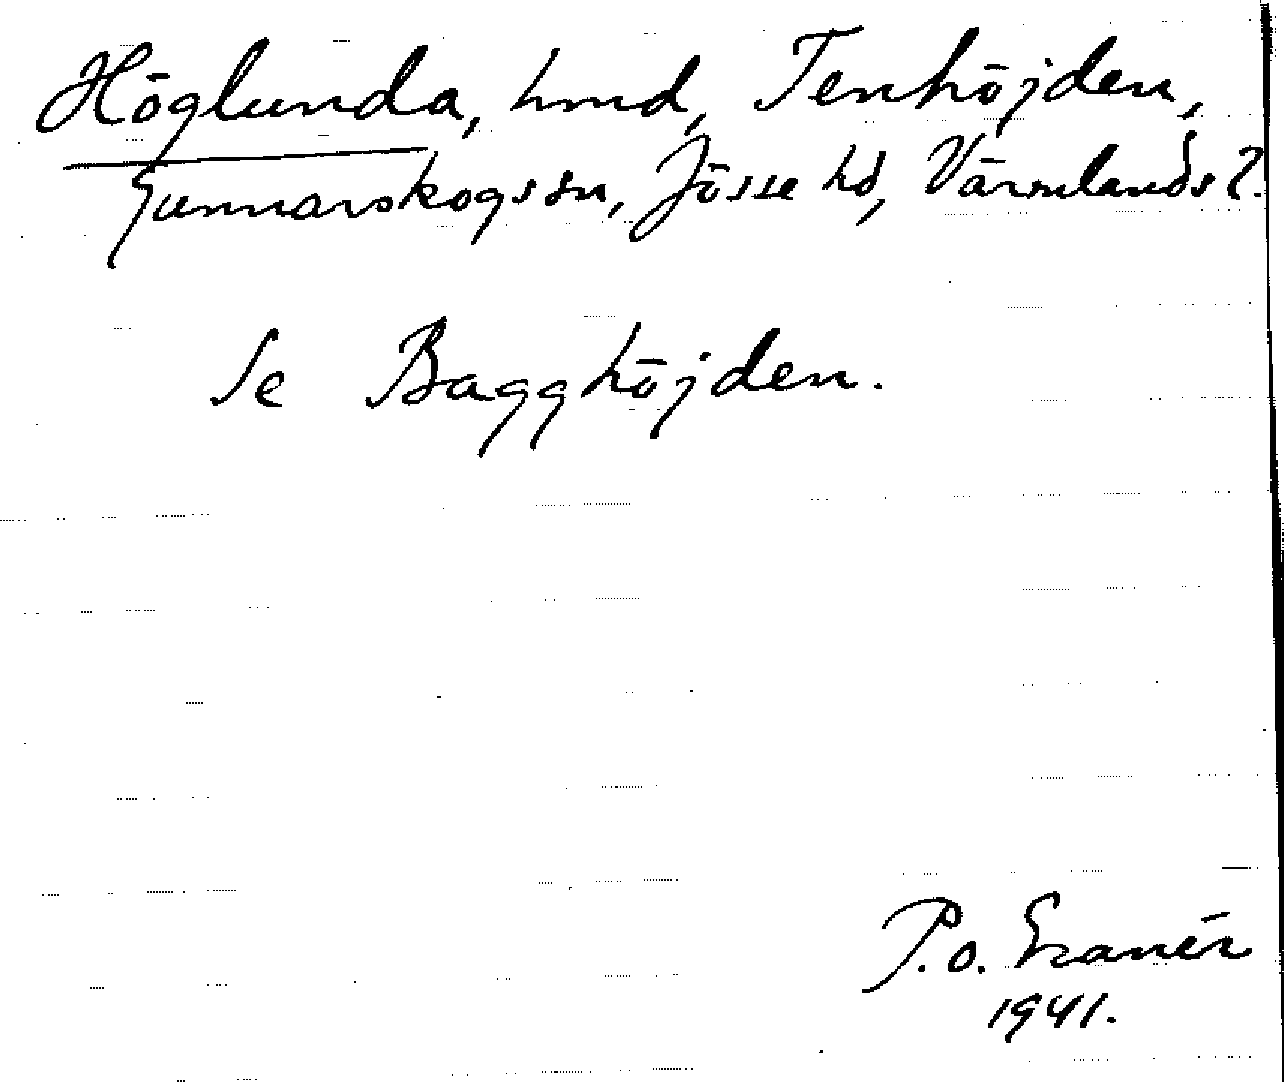 Höglunda, hmd, Tenhöjden,
Gunnarskogs sn, Jösse hd, Värmlands l.
Se Bagghöjden.
P.O.
1941.